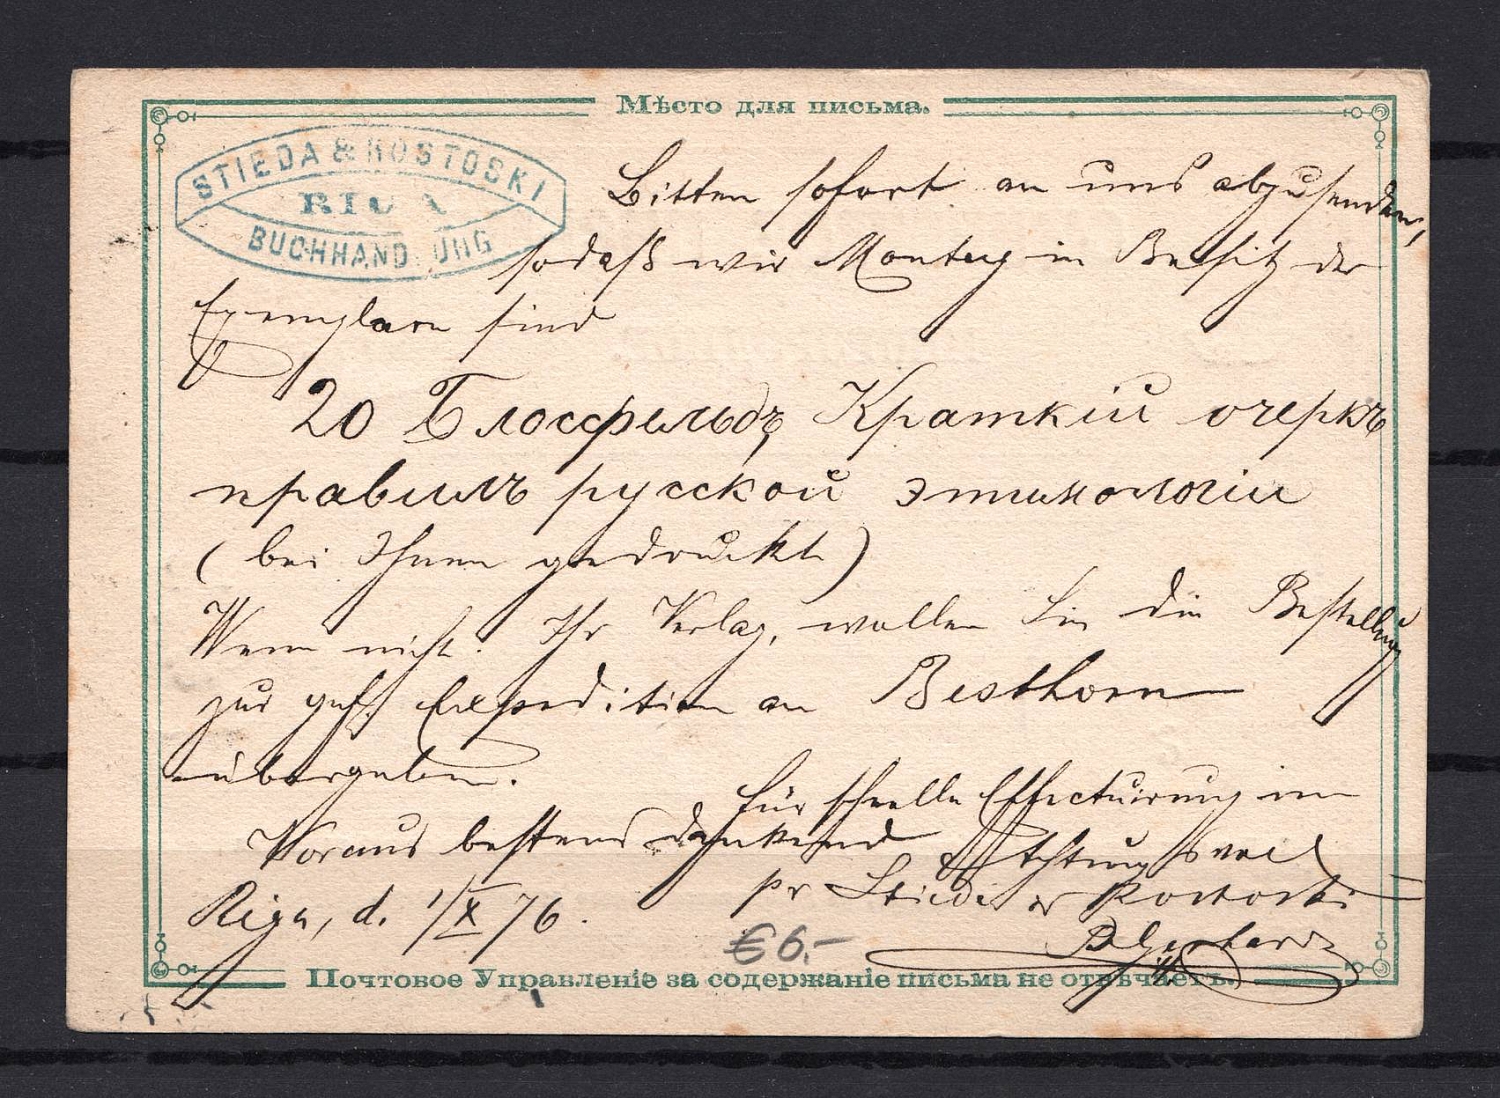 Мѣсто для письма.
STIEDA & ROSTOSKI
RIGA
BUCHHANDLUNG
Bitten sofort an uns abzusenden,
sodaß wir Montag in Besitz der
Exemplare sind
20 Блосфельдъ, Краткій очеркъ
правилъ русской этимологіи
(bei Ihnen gedruckt)
Wenn nicht Ihr Verlag, wollen Sie die Bestellung
zur gefl. Expedition an Besthorn
übergeben.
Für schnelle Effectuirung im
Voraus bestens dankend
Achtungsvoll
pr Stieda & Rostoski
Riga, d. 1/X 76.
€6.-
Почтовое Управленіе за содержаніе письма не отвѣчаетъ.